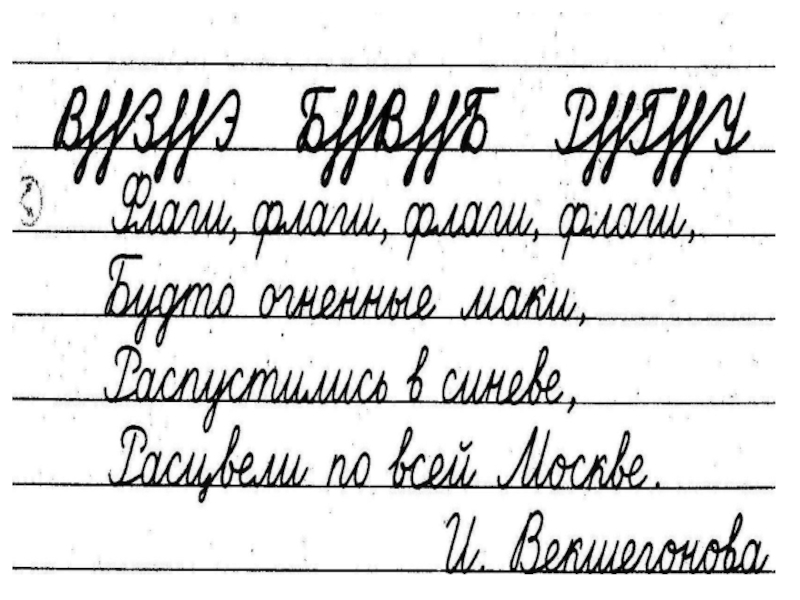 ВДДЗДДЭ БДДВДДБ РДДГДДУ
Флаги, флаги, флаги, флаги,
Будто огненные маки,
Распустились в синеве,
Расцвели по всей Москве.
И. Векшегонова